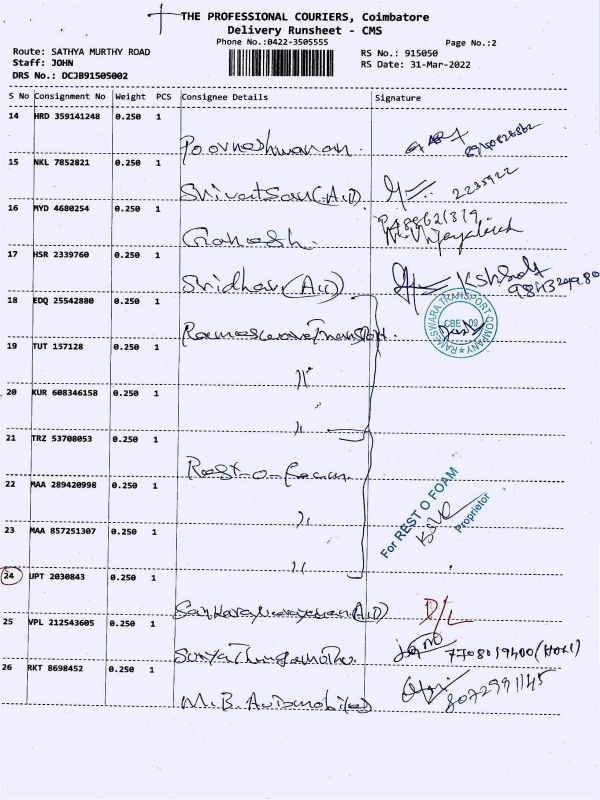 THE PROFESSIONAL COURIERS, Coimbatore
Delivery Runsheet - CMS
Phone No.:0422-3505555
Page No.:2
Route: SATHYA MURTHY ROAD
RS No.: 915050
Staff: JOHN
RS Date: 31-Mar-2022
DRS No.: DCJB91505002
S No Consignment No Weight PCS Consignee Details Signature
14 HRD 359141248 0.250 1
Poorneshwaran.
15 NKL 7852821 0.250 1
Srivatsan (A.D) 2235922
16 MYD 4680254 0.250 1
Ganesh.
17 HSR 2339760 0.250 1
Sridhar (AU)
18 EDQ 25542880 0.250 1
Rameswara Transport.
RAMESWARA TRANSPORT COMPANY
CBE - 09
19 TUT 157128 0.250 1
"
20 KUR 608346158 0.250 1
"
21 TRZ 53708053 0.250 1
Rest-o-foam
22 MAA 289420998 0.250 1
"
For REST O FOAM
Proprietor
23 MAA 857251307 0.250 1
"
24 UPT 2030843 0.250 1
Sankaranarayanan (A.D) D/L
25 VPL 212543605 0.250 1
7708019400
26 RKT 8698452 0.250 1
M.B. Automobiles 8072991145